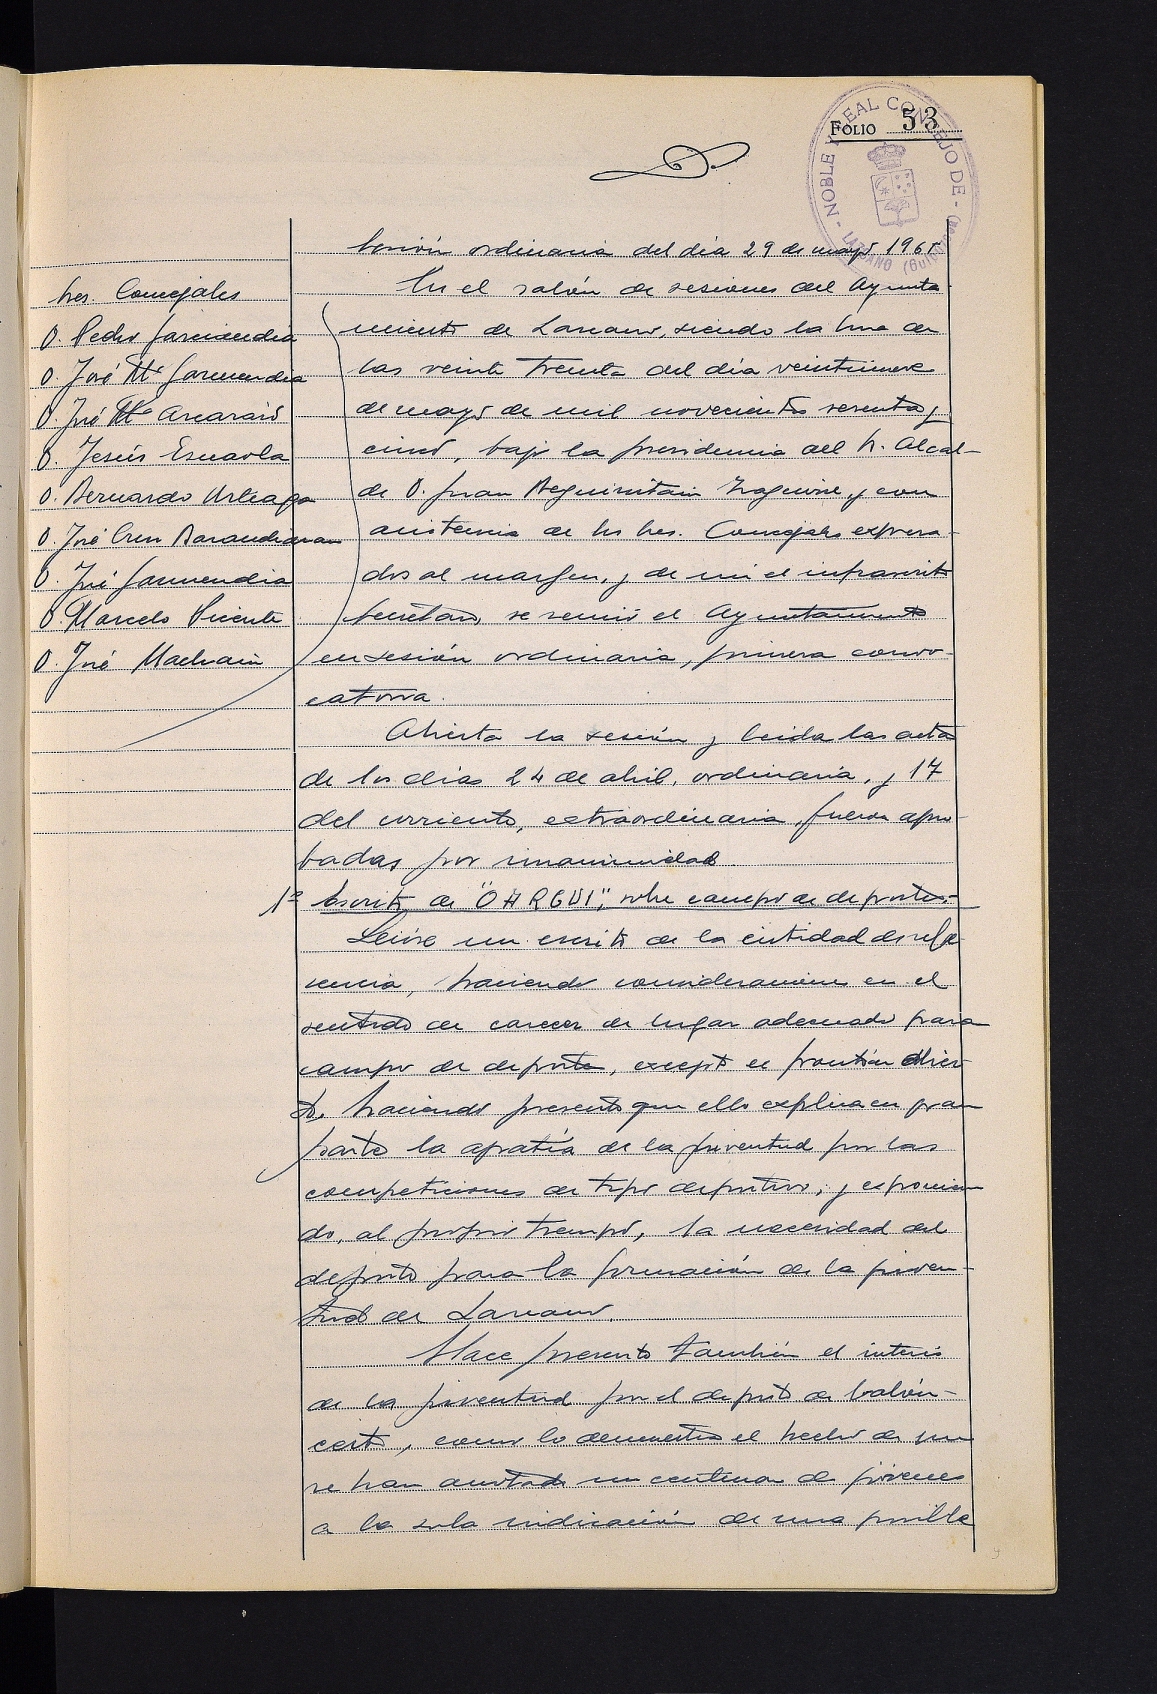 FOLIO 53
NOBLE Y LEAL CONCEJO DE - LAZCANO
Sesión ordinaria del día 29 de mayo 1965
Sres. Concejales
D. Pedro Garciandia
D. José Mª Garmendia
D. José Mª
D. Jesús
D. Bernardo Urteaga
D. José Cruz Barandiaran
D. José Garmendia
D. Marcelo Vicente
D. José Machain
En el salón de sesiones del Ayunta
miento de Lazcano, siendo la hora de
las veinte treinta del día veintinueve
de mayo de mil novecientos sesenta y
cinco, bajo la presidencia del Sr. Alcal-
de D. Juan Beguiristain y con
asistencia de los Sres. Concejales expresa-
dos al margen, y de mi el infrascrito
Secretario, se reunió el Ayuntamiento
en sesión ordinaria, primera convo-
catoria.
Abierta la sesión y leida las actas
de los dias 24 de abril, ordinaria, y 17
del corriente, extraordinaria, fueron apro-
badas por unanimidad.
1º Escrito de "OARGUI", sobre campo de deportes.-
Leióse un escrito de la entidad de refe-
rencia, haciendo consideraciones en el
sentido de carecer de lugar adecuado para
campo de deporte, excepto el frontón abier-
to, haciendo presente que ello explica en gran
parte la apatía de la juventud por las
competiciones de tipo deportivo; y exponien
do, al propio tiempo, la necesidad del
deporte para la formación de la juven-
tud de Lazcano.
Hace presente también el interés
de la juventud por el deporte de balón-
cesto, como lo demuestra el hecho de que
se han anotado un centenar de jóvenes
a la sola indicación de una posible